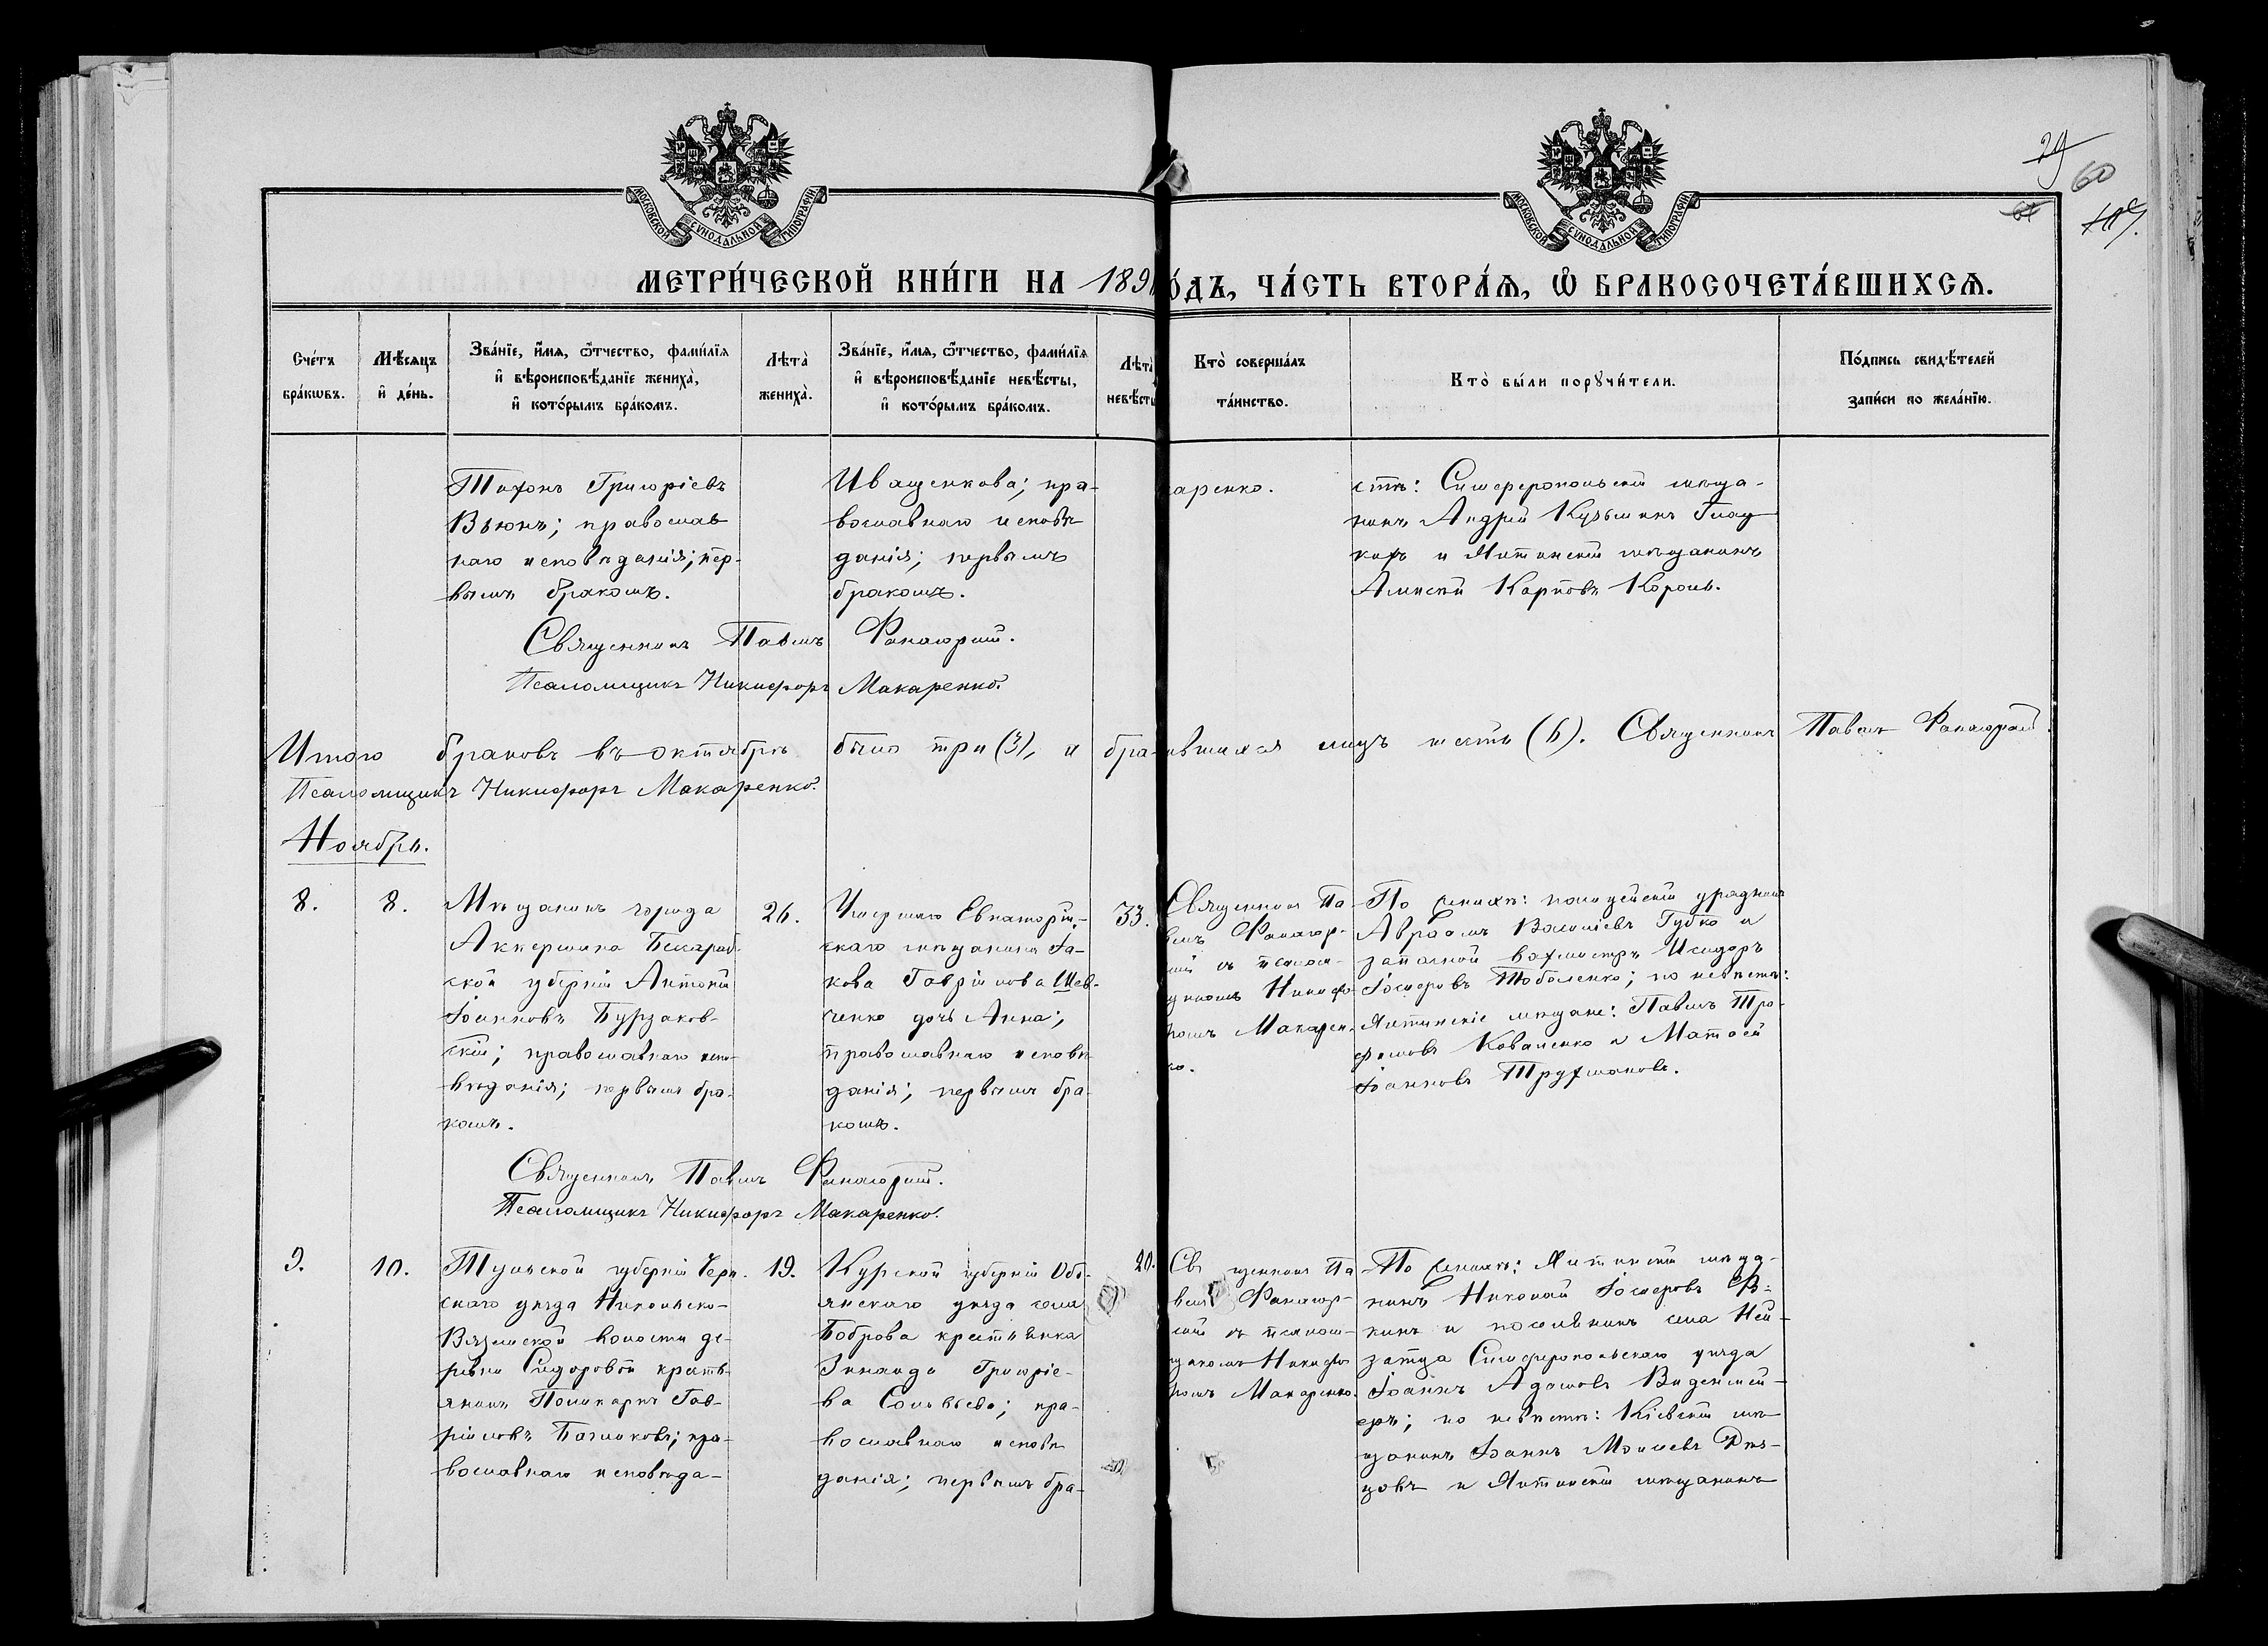 МОСКОВСКОЙ СѴНОДАЛЬНОЙ ТИПОГРАФІИ
МОСКОВСКОЙ СѴНОДАЛЬНОЙ ТИПОГРАФІИ
29
60
МЕТРИ́ЧЕСКОЙ КНИ́ГИ НА 189
О́ДЪ, ЧА́СТЬ ВТОРА́Ѧ, Ѿ БРАКОСОЧЕТА́ВШИХСѦ.
Сче́тъ бра́кѡвъ.
Мѣ́сяцъ и҆ де́нь.
Зва́нїе, и҆́мѧ, ѻ҆́тчество, фамѝлїѧ
и҆ вѣроисповѣ́данїе жениха̀,
и҆ кото́рымъ бра́комъ.
Лѣта̀ жениха̀.
Зва́нїе, и҆́мѧ, ѻ҆́тчество, фамѝлїѧ
и҆ вѣроисповѣ́данїе невѣ́сты,
и҆ кото́рымъ бра́комъ.
Лѣта̀ невѣ́сты
Кто̀ соверша́лъ
та́инство.
Кто̀ бы́ли порꙋчи́тели.
По́дпись свидѣ́телей
запи́си по жела́нїю.
Григоріевъ
Вьюнъ; православ
наго исповѣданія; пер-
вымъ бракомъ.
Иващенкова; пра-
вославнаго исповѣ
данія; первымъ
бракомъ.
аренко.
стѣ: Симферопольскій мѣща-
нинъ Андрей Кузьминъ
и Ялтинскій мѣщанинъ
Алексѣй Карповъ Король.
Священникъ Павелъ Фанагорій.
Псаломщикъ Никифоръ Макаренко.
Итого браковъ въ октябрѣ было три (3), и бра вшихся лицъ шесть (6). Священникъ Павелъ
Псаломщикъ Никифоръ Макаренко.
Ноябрь.
8.
8.
Мѣщанинъ города
Аккермана Бессараб-
ской губерніи Антоній
Іоанновъ Бурзаков-
скій; православнаго испо-
вѣданія; первымъ бра-
комъ.
26.
Умершаго Евпаторій-
скаго мѣщанина Іа-
кова Гавріилова Шев-
ченко дочь Анна;
православнаго исповѣ-
данія; первымъ бра-
комъ.
33.
Священникъ Па-
велъ Фанагор-
ій съ псалом-
щикомъ Никифо-
ромъ Макарен-
ко.
По женихѣ: полицейскій урядникъ
Авраамъ Василіевъ Губко и
запасной вахмистръ Исидоръ
Іосифовъ Тоболенко; по невѣстѣ:
Ялтинскіе мѣщане: Павелъ Тро-
фимовъ Коваленко и Матѳей
Іоанновъ Трухмановъ.
Священникъ Павелъ Фанагорій.
Псаломщикъ Никифоръ Макаренко.
9.
10.
Тульской губерніи Черн-
скаго уѣзда Никольско-
Вяземской волости де-
ревни Сидоровой кресть-
янинъ Поликарпъ Гав-
ріиловъ пра-
вославнаго исповѣда-
19.
Курской губерніи Обо-
янскаго уѣзда села
Боброва крестьянка
Зинаида Григоріе-
ва Соловьева; пра-
вославнаго исповѣ
данія; первымъ бра-
20.
Св щенникъ Па
велъ Фанагор-
скій съ псалом-
щикомъ Никифо
ромъ Макаренко.
По женихѣ: Ялтинскій мѣща-
нинъ Николай Іосифовъ
и поселянинъ села Ней-
заца Симферопольскаго уѣзда
Іоаннъ Адамовъ Виденмей-
еръ; по невѣстѣ: Кіевскій мѣ-
щанинъ Іоаннъ
и Ялтинскій мѣщанинъ